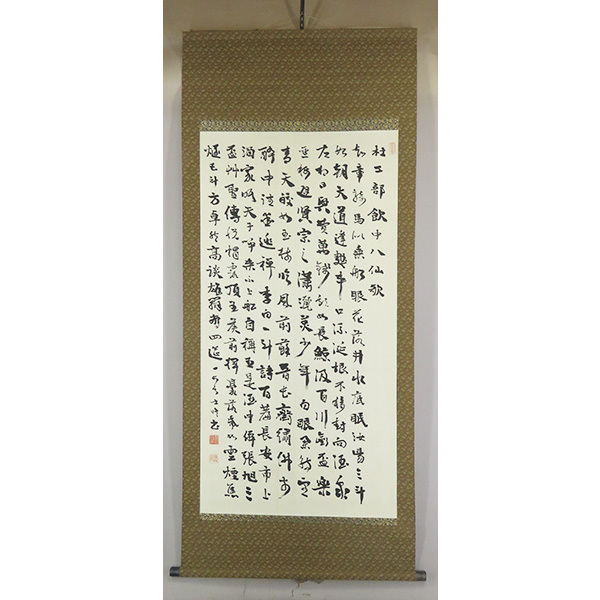 杜工部飲中八仙歌
知章騎馬似乘船眼花落井水底眠汝陽三斗
始朝天道逢麴車口流涎恨不移封向酒泉
左相日興費萬錢飲如長鯨汲百川銜盃樂
聖稱避賢宗之瀟灑美少年
青天皎如玉樹臨風前蘇晉長齋繡佛前
醉中往往愛逃禪李白一斗詩百篇長安市上
酒家眠天子呼來不上船自稱臣是酒中仙張旭三
盃草聖傳脫帽露頂王公前揮毫落紙如雲煙焦
遂五斗方卓然高談雄辯驚四筵